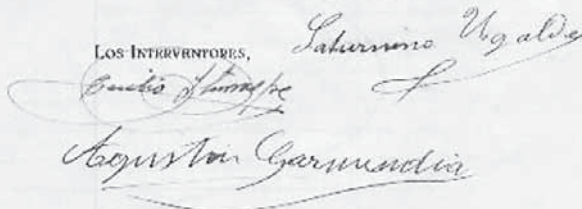 LOS INTERVENTORES,
Saturnino Ugalde
Emilio
Agustin Garmendia